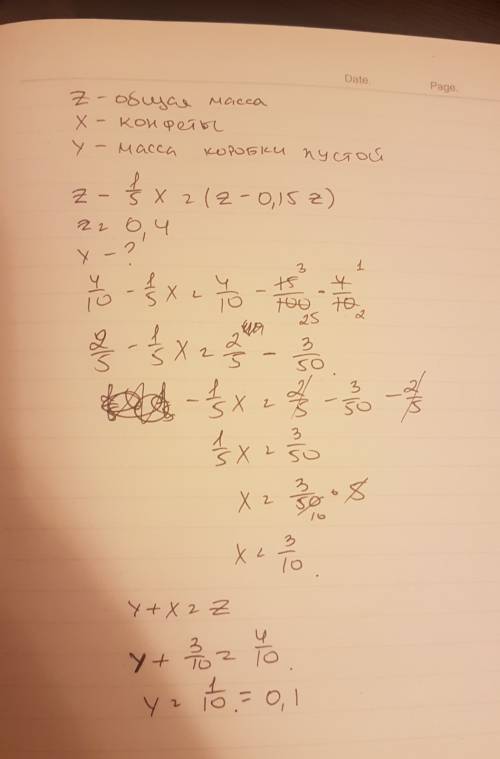 Date. Page.
Z - общая масса
X - конфеты
Y - масса коробки пустой
Z - 1/5 X = (Z - 0,15 Z)
Z = 0,4
Y - ?
4/10 - 1/5 X = 4/10 - 15/100 · 4/10
3 1 25 2
2/5 - 1/5 X = 2/5 - 3/50.
- 1/5 X = 2/5 - 3/50 - 2/5
1/5 X = 3/50
X = 3/50 · 5
10
X = 3/10.
Y + X = Z
Y + 3/10 = 4/10.
Y = 1/10. = 0,1